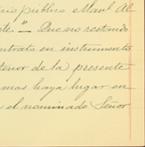 pública Mavl Al
Que no restando
ontrata en instrumento
tenor de la presente
mas haya lugar en
el nominado Señor